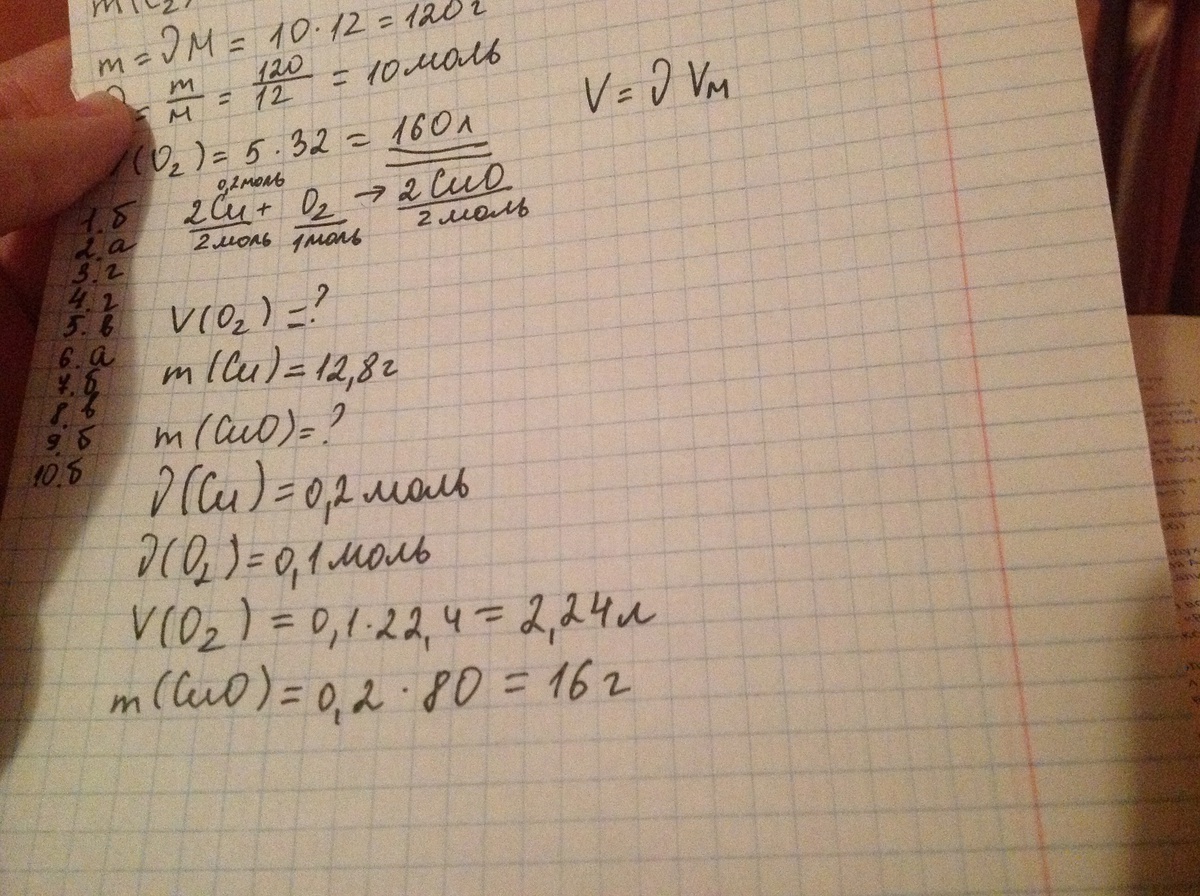 m = ∂M = 10·12 = 120г
= m/м = 120/12 = 10 моль
V = ∂ Vм
(O₂) = 5·32 = 160л
0,2моль
2Cu + O₂ → 2CuO
2моль 1моль 2моль
1. б
2. а
3. г
4. г
5. в
6. а
7. б
8. в
9. б
10. б
V(O₂) = ?
m(Cu) = 12,8г
m(CuO) = ?
∂(Cu) = 0,2 моль
∂(O₂) = 0,1 моль
V(O₂) = 0,1·22,4 = 2,24л
m(CuO) = 0,2·80 = 16г